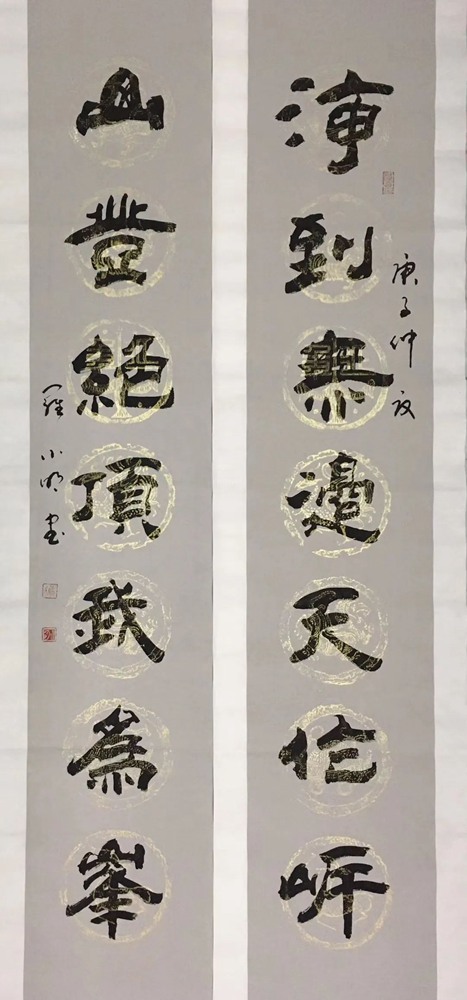 海到無邊天作岸
庚子仲夏
山登絶頂我為峯
羅小明書